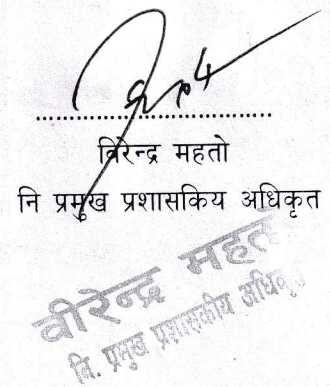 विरेन्द्र महतो
नि प्रमुख प्रशासकिय अधिकृत
वीरेन्द्र महतो
नि. प्रमुख प्रशासकीय अधिकृत